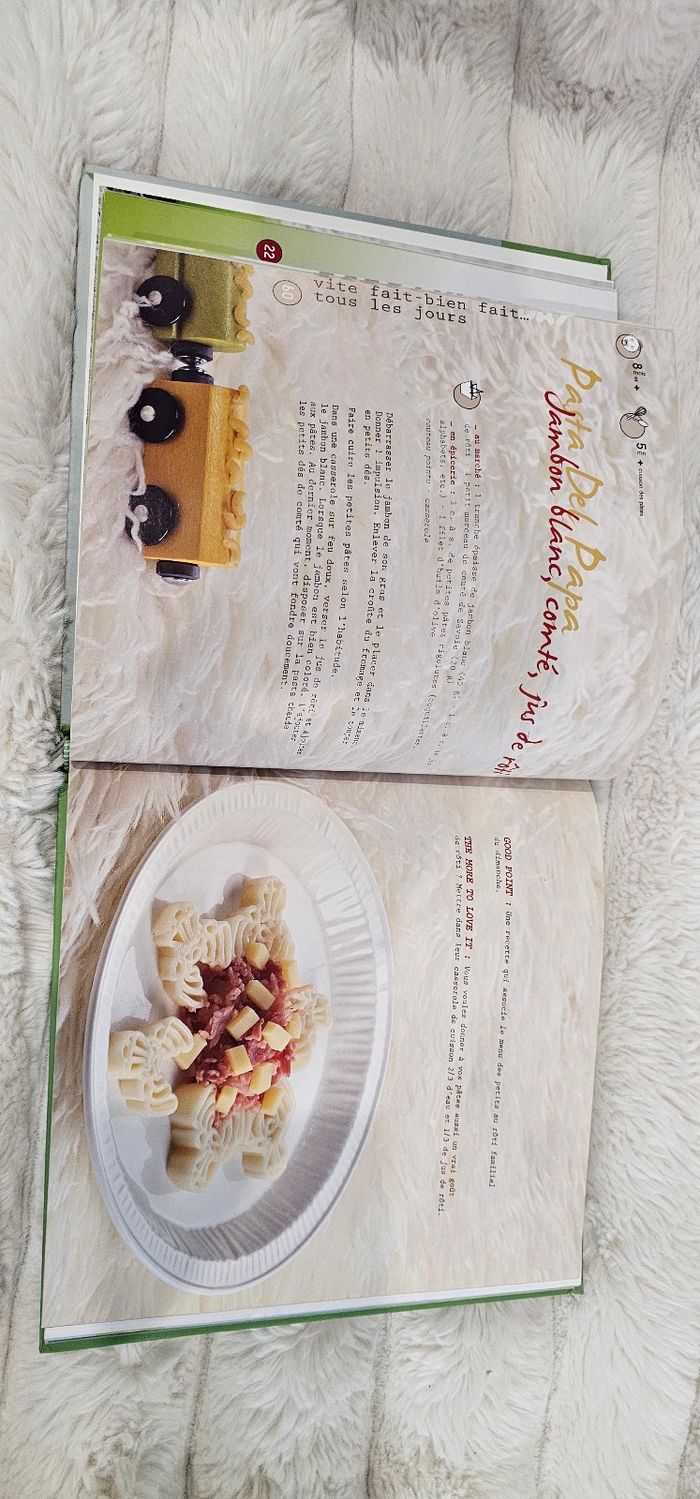 22
60
vite fait-bien fait...
tous les jours
8
5
+ cuisson des pâtes
Pasta Del Papa
Jambon blanc, comté, jus de rôti
– au marché : 1 tranche épaisse de jambon blanc (40 g),
de rôti 1 petit morceau de comté de Savoie (20 g)
– en épicerie : c. à s. de petites pâtes figurines (coquillettes,
alphabets, etc.) - 1 filet d'huile d'olive
couteau pointu casserole
Débarrasser le jambon de son gras et le placer dans
Donner 1 impulsion. Enlever la croûte du fromage et le couper
en petits dés.
Faire cuire les petites pâtes selon l'habitude.
Dans une casserole sur feu doux, verser le jus de rôti et ajouter
le jambon blanc. Lorsque le jambon est bien coloré, l'ajouter
aux pâtes. Au dernier moment, disposer sur la pasta chaude
les petits dés de comté qui vont fondre doucement.
GOOD POINT : Une recette qui associe le menu des petits au rôti familial
du dimanche.
THE MORE TO LOVE IT : Vous voulez donner à vos pâtes aussi un vrai goût
de rôti ? Mettre dans leur casserole de cuisson 2/3 d'eau et 1/3 de jus de rôti.